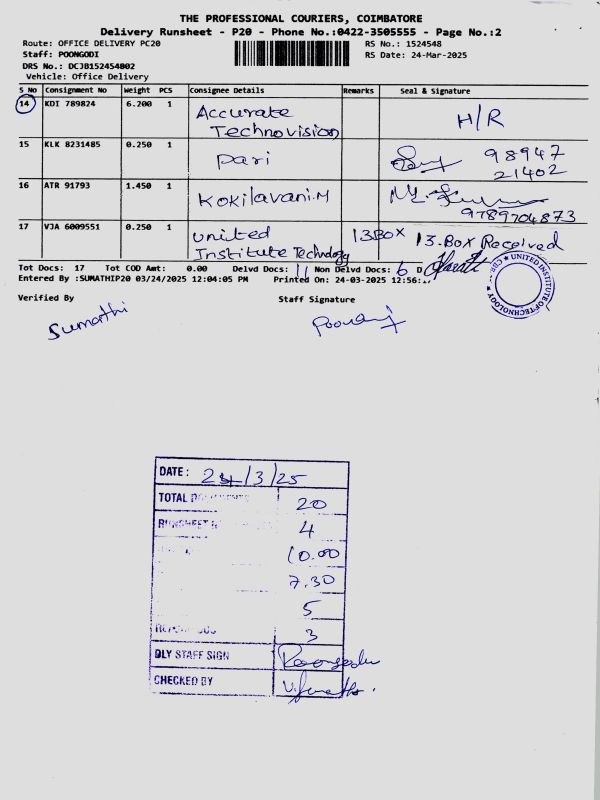 THE PROFESSIONAL COURIERS, COIMBATORE
Delivery Runsheet - P20 - Phone No.:0422-3505555 - Page No.:2
Route: OFFICE DELIVERY PC20
RS No.: 1524548
Staff: POONGODI
RS Date: 24-Mar-2025
DRS No.: DCJB152454802
Vehicle: Office Delivery
S No Consignment No Weight PCS Consignee Details Remarks Seal & Signature
14 KDI 789824 6.200 1 Accurate Technovision H/R
15 KLK 8231485 0.250 1 Pari 98947 21402
16 ATR 91793 1.450 1 Kokilavani.M 9789704873
17 VJA 6009551 0.250 1 United Institute Technology 13Box 13-Box Received
Tot Docs: 17 Tot COD Amt: 0.00 Delvd Docs: 11 Non Delvd Docs: 6
Entered By :SUMATHIP20 03/24/2025 12:04:05 PM Printed On: 24-03-2025 12:56:
UNITED INSTITUTE OF TECHNOLOGY ★ CBE ★
Verified By Staff Signature
Sumathi
DATE: 24/3/25
TOTAL 20
4
10.00
7.30
5
3
DLY STAFF SIGN
CHECKED BY